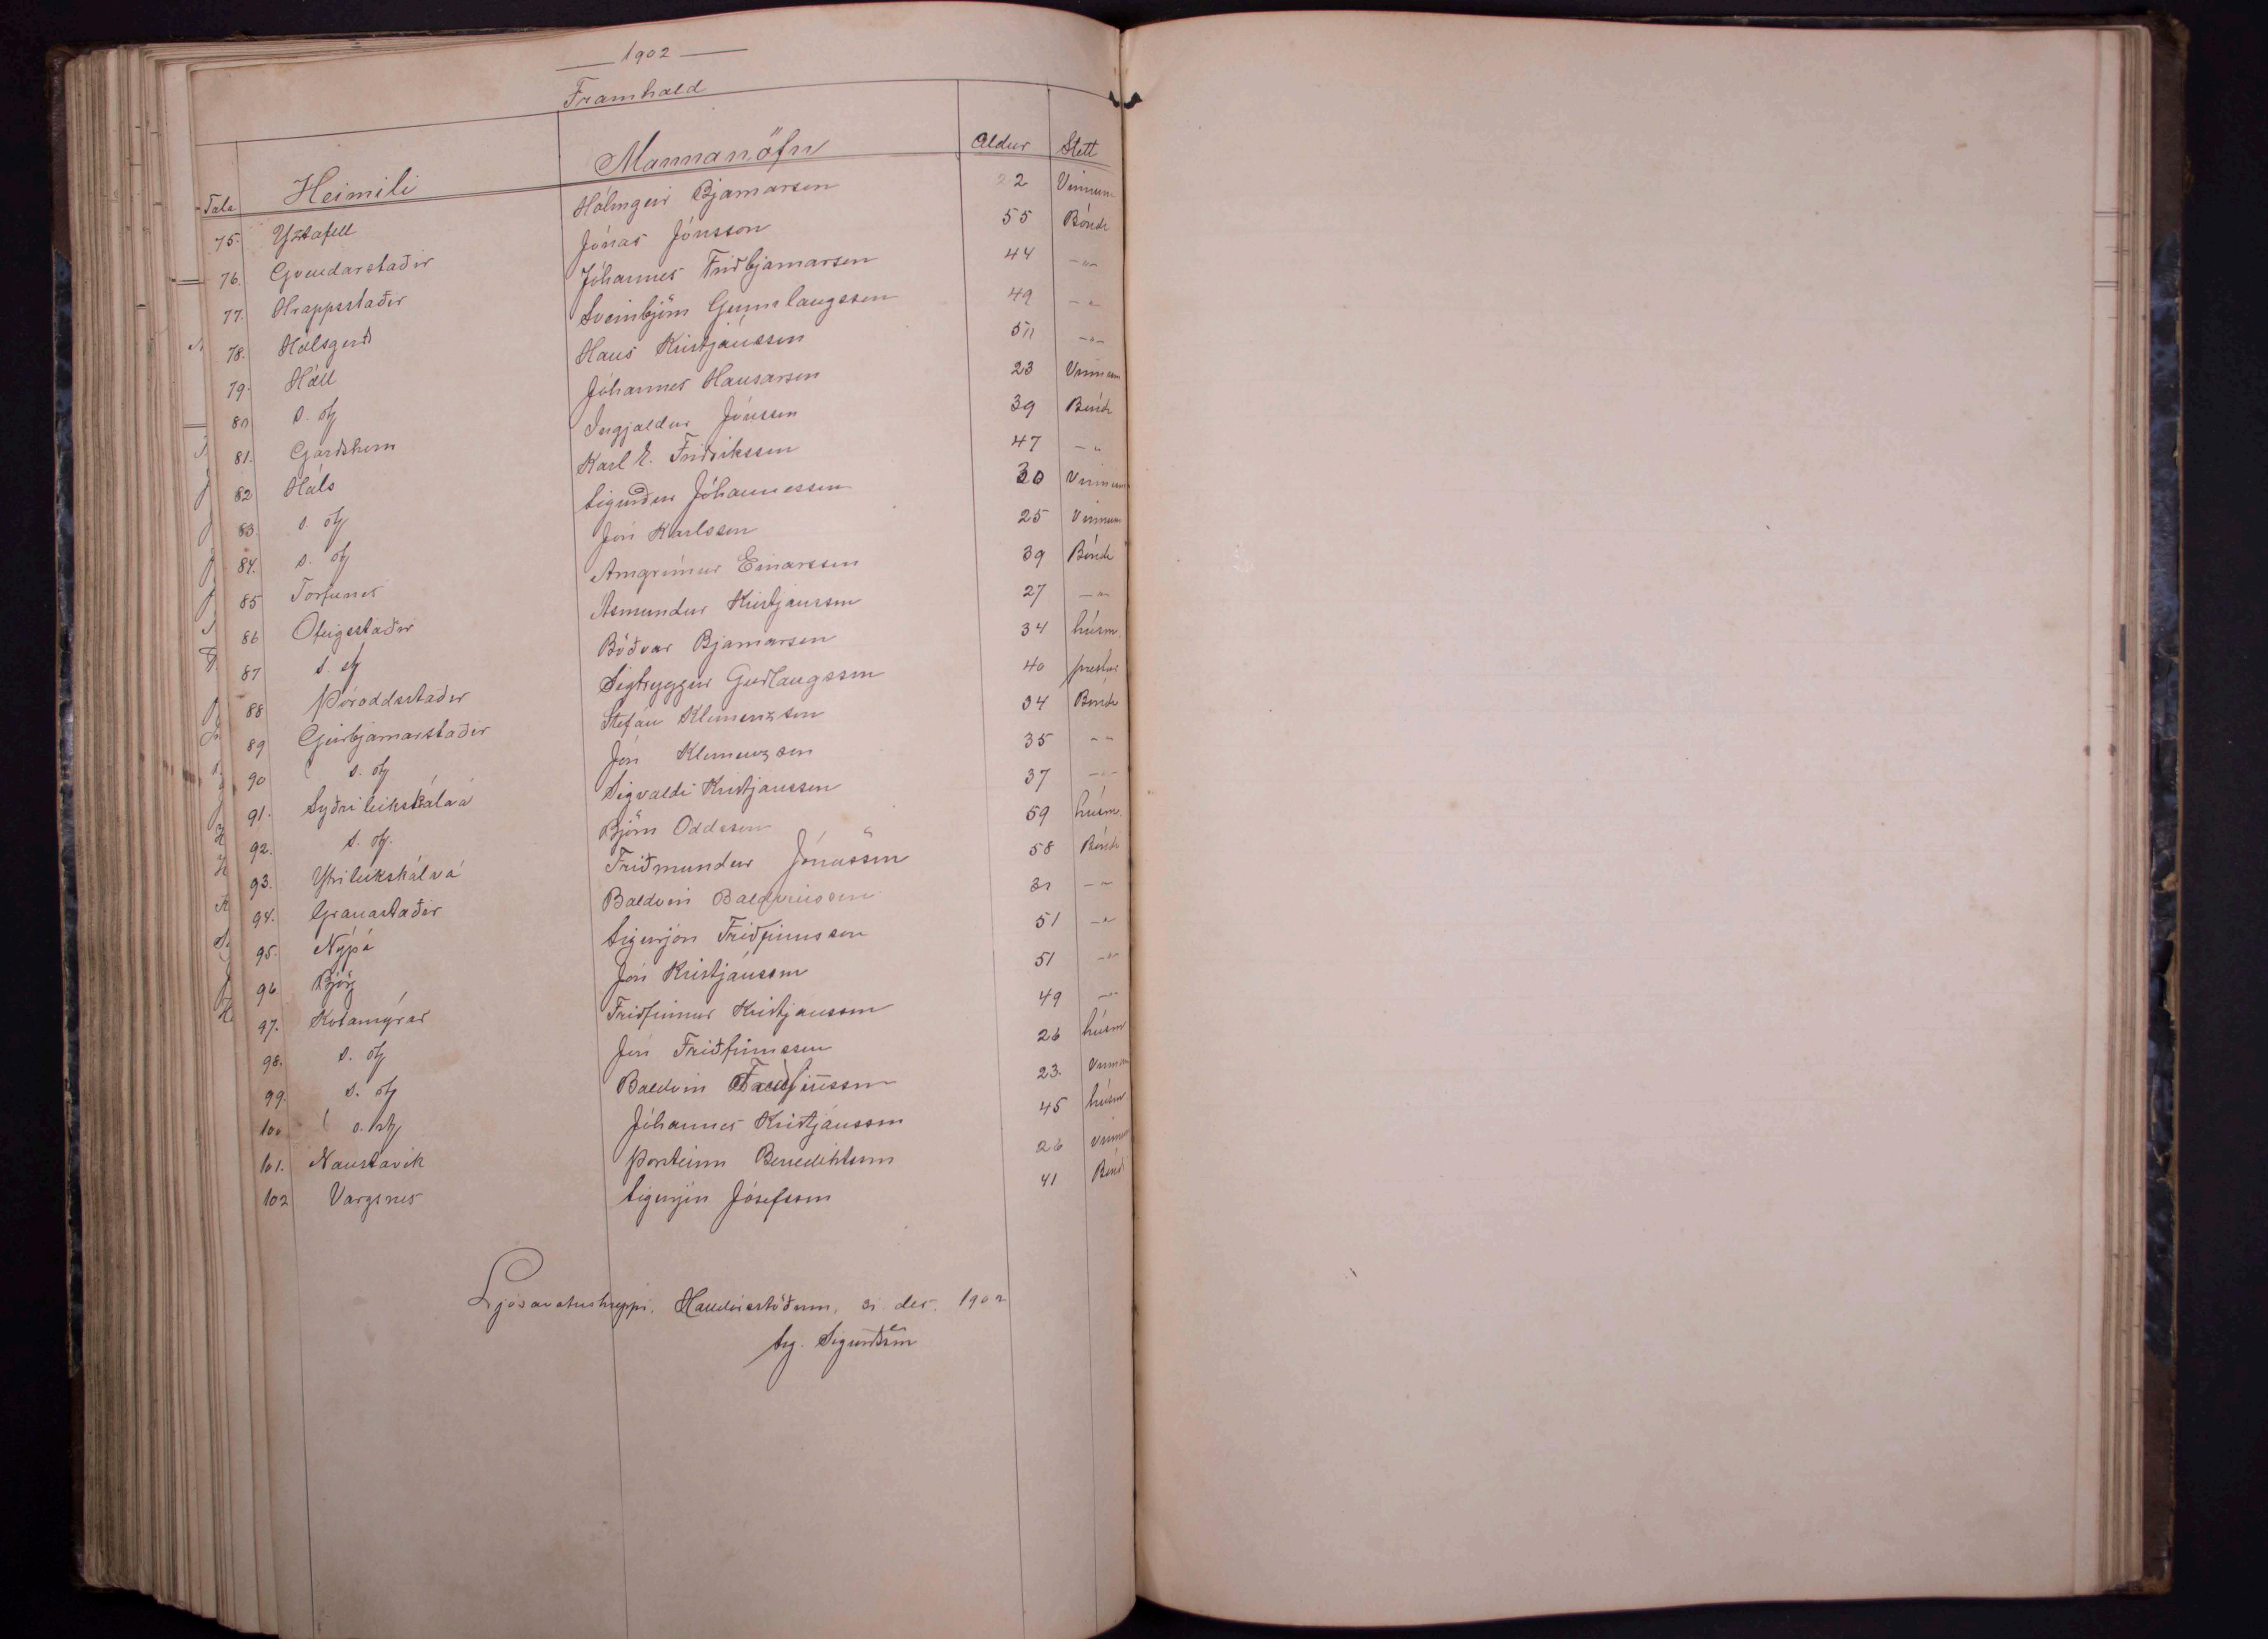 1902
Framhald
Tala Heimili Mannanöfn Aldur Stétt
75. Yztafell Hólmgeir Bjarnarson 22 Vinnum
76. Gvendarstaðir Jónas Jónsson 55 Bóndi
77. Hrappsstaðir Jóhannes Friðbjarnarson 44 -"-
78. Hálsgerði Sveinbjörn Gunnlaugsson 49 -"-
79. Háll Hans Kristjánsson 50 -"-
80 s. st Jóhannes Hansarson 23 Vinnum
81. Garðshorn Ingjaldur Jónsson 39 Bóndi
82 Háls Karl E. Friðriksson 47 - "
83. s. st Sigurður Jóhannesson 30 Vinnum
84. s. st Jón Karlsson 25 Vinnum
85 Torfunes Arngrímur Einarsson 39 Bóndi
86 Ófeigsstaðir Ásmundur Kristjansson 27 -"-
87 s. st Böðvar Bjarnarson 34 húsm.
88 Þóroddsstaðir Sigtryggur Guðlaugsson 40 prestur
89 Geirbjarnarstaðir Stefán Klemenzson 34 Bóndi
90 s. st Jón Klemenzson 35 -"-
91. Syðrileikskálaá Sigvaldi Kristjansson 37 -"-
92. s. st. Björn Oddsson 59 húsm.
93. Ytrileikskálaá Friðmundur Jónasson 58 Bóndi
94. Granastaðir Baldvin Baldvinsson 31 -"-
95. Nýpá Sigurjón Friðfinnsson 51 -"-
96 Björg Jón Kristjánsson 51 -"-
97. Kotamýrar Friðfinnur Kristjansson 49 -"-
98. s. st Jón Friðfinnsson 26 húsm
99. s. st Baldvin Friðfinnsson 23. Vinnum
100 s. st Jóhannes Kristjánsson 45 húsm.
101. Naustavík Þorsteinn Benediktsson 26 Vinnum
102 Vargsnes Sigurjón Jósefsson 41 Bóndi
Ljósavatnshreppi, Halldórsstöðum, 31. des. 1902
Sig. Sigurðsson